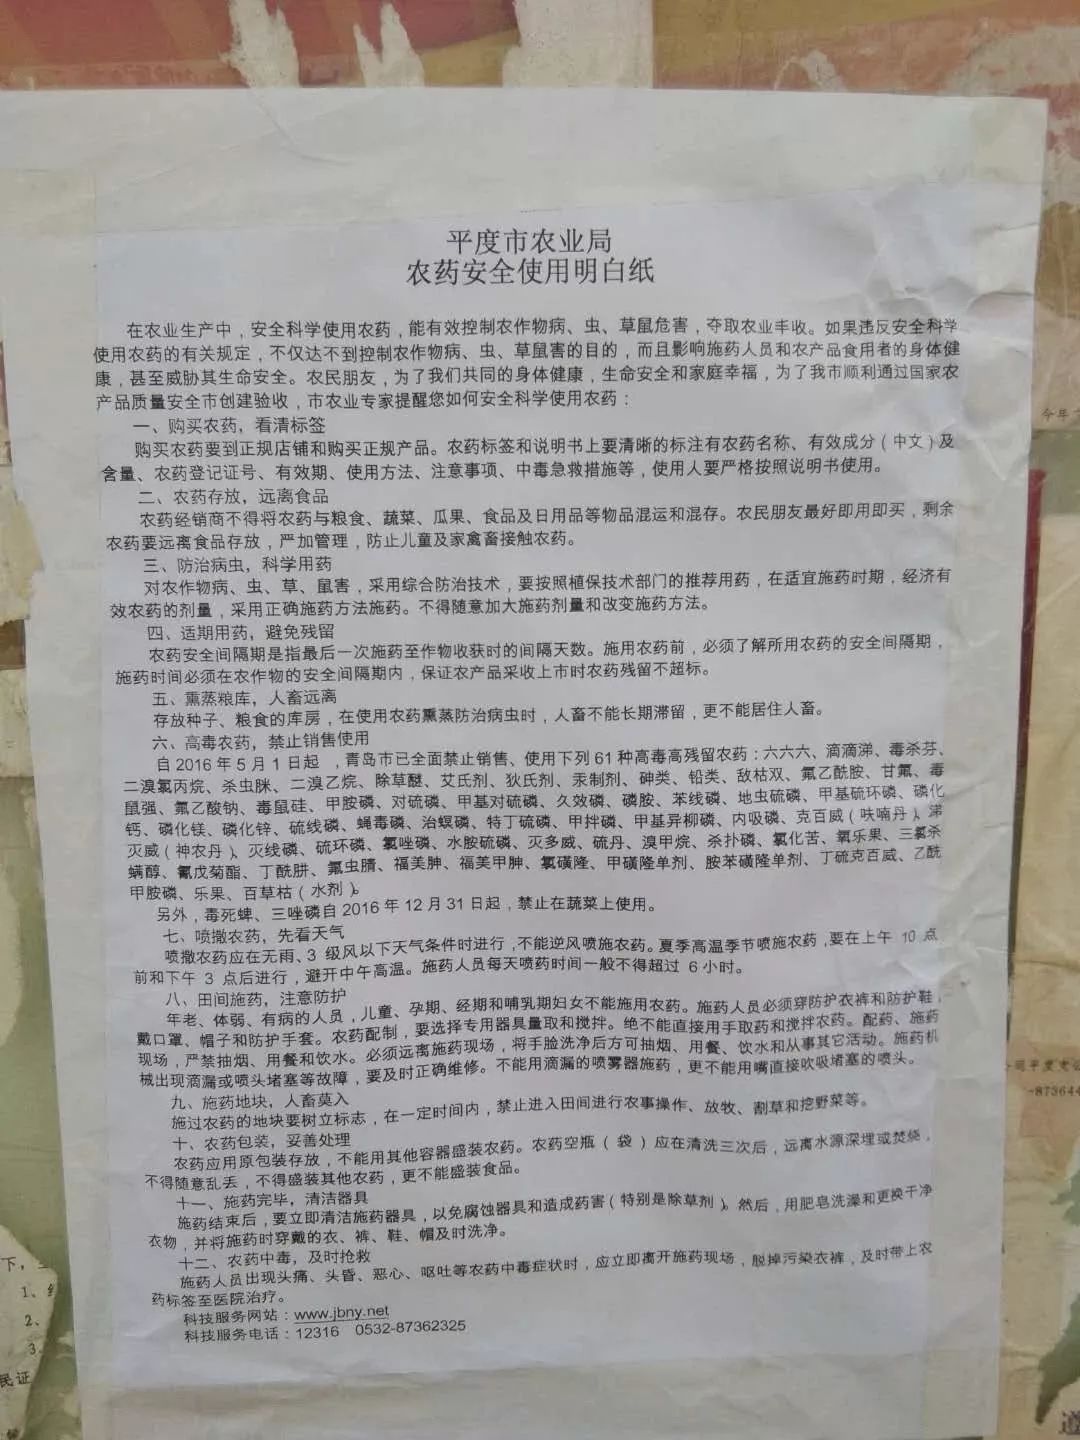 平度市农业局
农药安全使用明白纸
在农业生产中，安全科学使用农药，能有效控制农作物病、虫、草鼠危害，夺取农业丰收。如果违反安全科学
使用农药的有关规定，不仅达不到控制农作物病、虫、草鼠害的目的，而且影响施药人员和农产品食用者的身体健
康，甚至威胁其生命安全。农民朋友，为了我们共同的身体健康，生命安全和家庭幸福，为了我市顺利通过国家农
产品质量安全市创建验收，市农业专家提醒您如何安全科学使用农药：
一、购买农药，看清标签
购买农药要到正规店铺和购买正规产品。农药标签和说明书上要清晰的标注有农药名称、有效成分（中文）及
含量、农药登记证号、有效期、使用方法、注意事项、中毒急救措施等，使用人要严格按照说明书使用。
二、农药存放，远离食品
农药经销商不得将农药与粮食、蔬菜、瓜果、食品及日用品等物品混运和混存。农民朋友最好即用即买，剩余
农药要远离食品存放，严加管理，防止儿童及家禽畜接触农药。
三、防治病虫，科学用药
对农作物病、虫、草、鼠害，采用综合防治技术，要按照植保技术部门的推荐用药，在适宜施药时期，经济有
效农药的剂量，采用正确施药方法施药。不得随意加大施药剂量和改变施药方法。
四、适期用药，避免残留
农药安全间隔期是指最后一次施药至作物收获时的间隔天数。施用农药前，必须了解所用农药的安全间隔期，
施药时间必须在农作物的安全间隔期内，保证农产品采收上市时农药残留不超标。
五、熏蒸粮库，人畜远离
存放种子、粮食的库房，在使用农药熏蒸防治病虫时，人畜不能长期滞留，更不能居住人畜。
六、高毒农药，禁止销售使用
自 2016 年 5 月 1 日起 ，青岛市已全面禁止销售、使用下列 61 种高毒高残留农药：六六六、滴滴涕、毒杀芬、
二溴氯丙烷、杀虫脒、二溴乙烷、除草醚、艾氏剂、狄氏剂、汞制剂、砷类、铅类、敌枯双、氟乙酰胺、甘氟、毒
鼠强、氟乙酸钠、毒鼠硅、甲胺磷、对硫磷、甲基对硫磷、久效磷、磷胺、苯线磷、地虫硫磷、甲基硫环磷、磷化
钙、磷化镁、磷化锌、硫线磷、蝇毒磷、治螟磷、特丁硫磷、甲拌磷、甲基异柳磷、内吸磷、克百威（呋喃丹）、涕
灭威（神农丹）、灭线磷、硫环磷、氯唑磷、水胺硫磷、灭多威、硫丹、溴甲烷、杀扑磷、氯化苦、氧乐果、三氯杀
螨醇、氰戊菊酯、丁酰肼、氟虫腈、福美胂、福美甲胂、氯磺隆、甲磺隆单剂、胺苯磺隆单剂、丁硫克百威、乙酰
甲胺磷、乐果、百草枯（水剂）。
另外，毒死蜱、三唑磷自 2016 年 12 月 31 日起，禁止在蔬菜上使用。
七、喷撒农药，先看天气
喷撒农药应在无雨、3 级风以下天气条件时进行，不能逆风喷施农药。夏季高温季节喷施农药，要在上午 10 点
前和下午 3 点后进行，避开中午高温。施药人员每天喷药时间一般不得超过 6 小时。
八、田间施药，注意防护
年老、体弱、有病的人员，儿童、孕期、经期和哺乳期妇女不能施用农药。施药人员必须穿防护衣裤和防护鞋，
戴口罩、帽子和防护手套。农药配制，要选择专用器具量取和搅拌。绝不能直接用手取药和搅拌农药。配药、施药
现场，严禁抽烟、用餐和饮水。必须远离施药现场，将手脸洗净后方可抽烟、用餐、饮水和从事其它活动。施药机
械出现滴漏或喷头堵塞等故障，要及时正确维修。不能用滴漏的喷雾器施药，更不能用嘴直接吹吸堵塞的喷头。
九、施药地块，人畜莫入
施过农药的地块要树立标志，在一定时间内，禁止进入田间进行农事操作、放牧、割草和挖野菜等。
十、农药包装，妥善处理
农药应用原包装存放，不能用其他容器盛装农药。农药空瓶（袋）应在清洗三次后，远离水源深埋或焚烧，
不得随意乱丢，不得盛装其他农药，更不能盛装食品。
十一、施药完毕，清洁器具
施药结束后，要立即清洁施药器具，以免腐蚀器具和造成药害（特别是除草剂）。然后，用肥皂洗澡和更换干净
衣物，并将施药时穿戴的衣、裤、鞋、帽及时洗净。
十二、农药中毒，及时抢救
施药人员出现头痛、头昏、恶心、呕吐等农药中毒症状时，应立即离开施药现场，脱掉污染衣裤，及时带上农
药标签至医院治疗。
科技服务网站：www.jbny.net
科技服务电话：12316 0532-87362325
今年
司平度支
-873644
下，
1、
2、
3、
民证